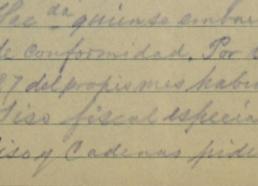 Hac.da quien se embar
de conformidad. Por
87 del propio mes habi
Piso fiscal especia
iso y Cadenas pide